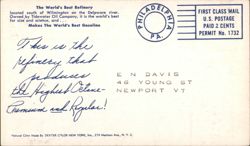 The World's Best Refinery
Located south of Wilmington on the Delaware river.
Owned by Tidewater Oil Company, it is the world's best
for size and science, and
Makes The World's Best Gasoline
PHILADELPHIA
PA.
FIRST CLASS MAIL
U. S. POSTAGE
PAID 2 CENTS
PERMIT No. 1732
This is the
refinery that
produces
the Highest Octane
Premium and Regular!
E N DAVIS
46 YOUNG ST
NEWPORT VT
Natural Color Made by DEXTER COLOR NEW YORK, INC.,